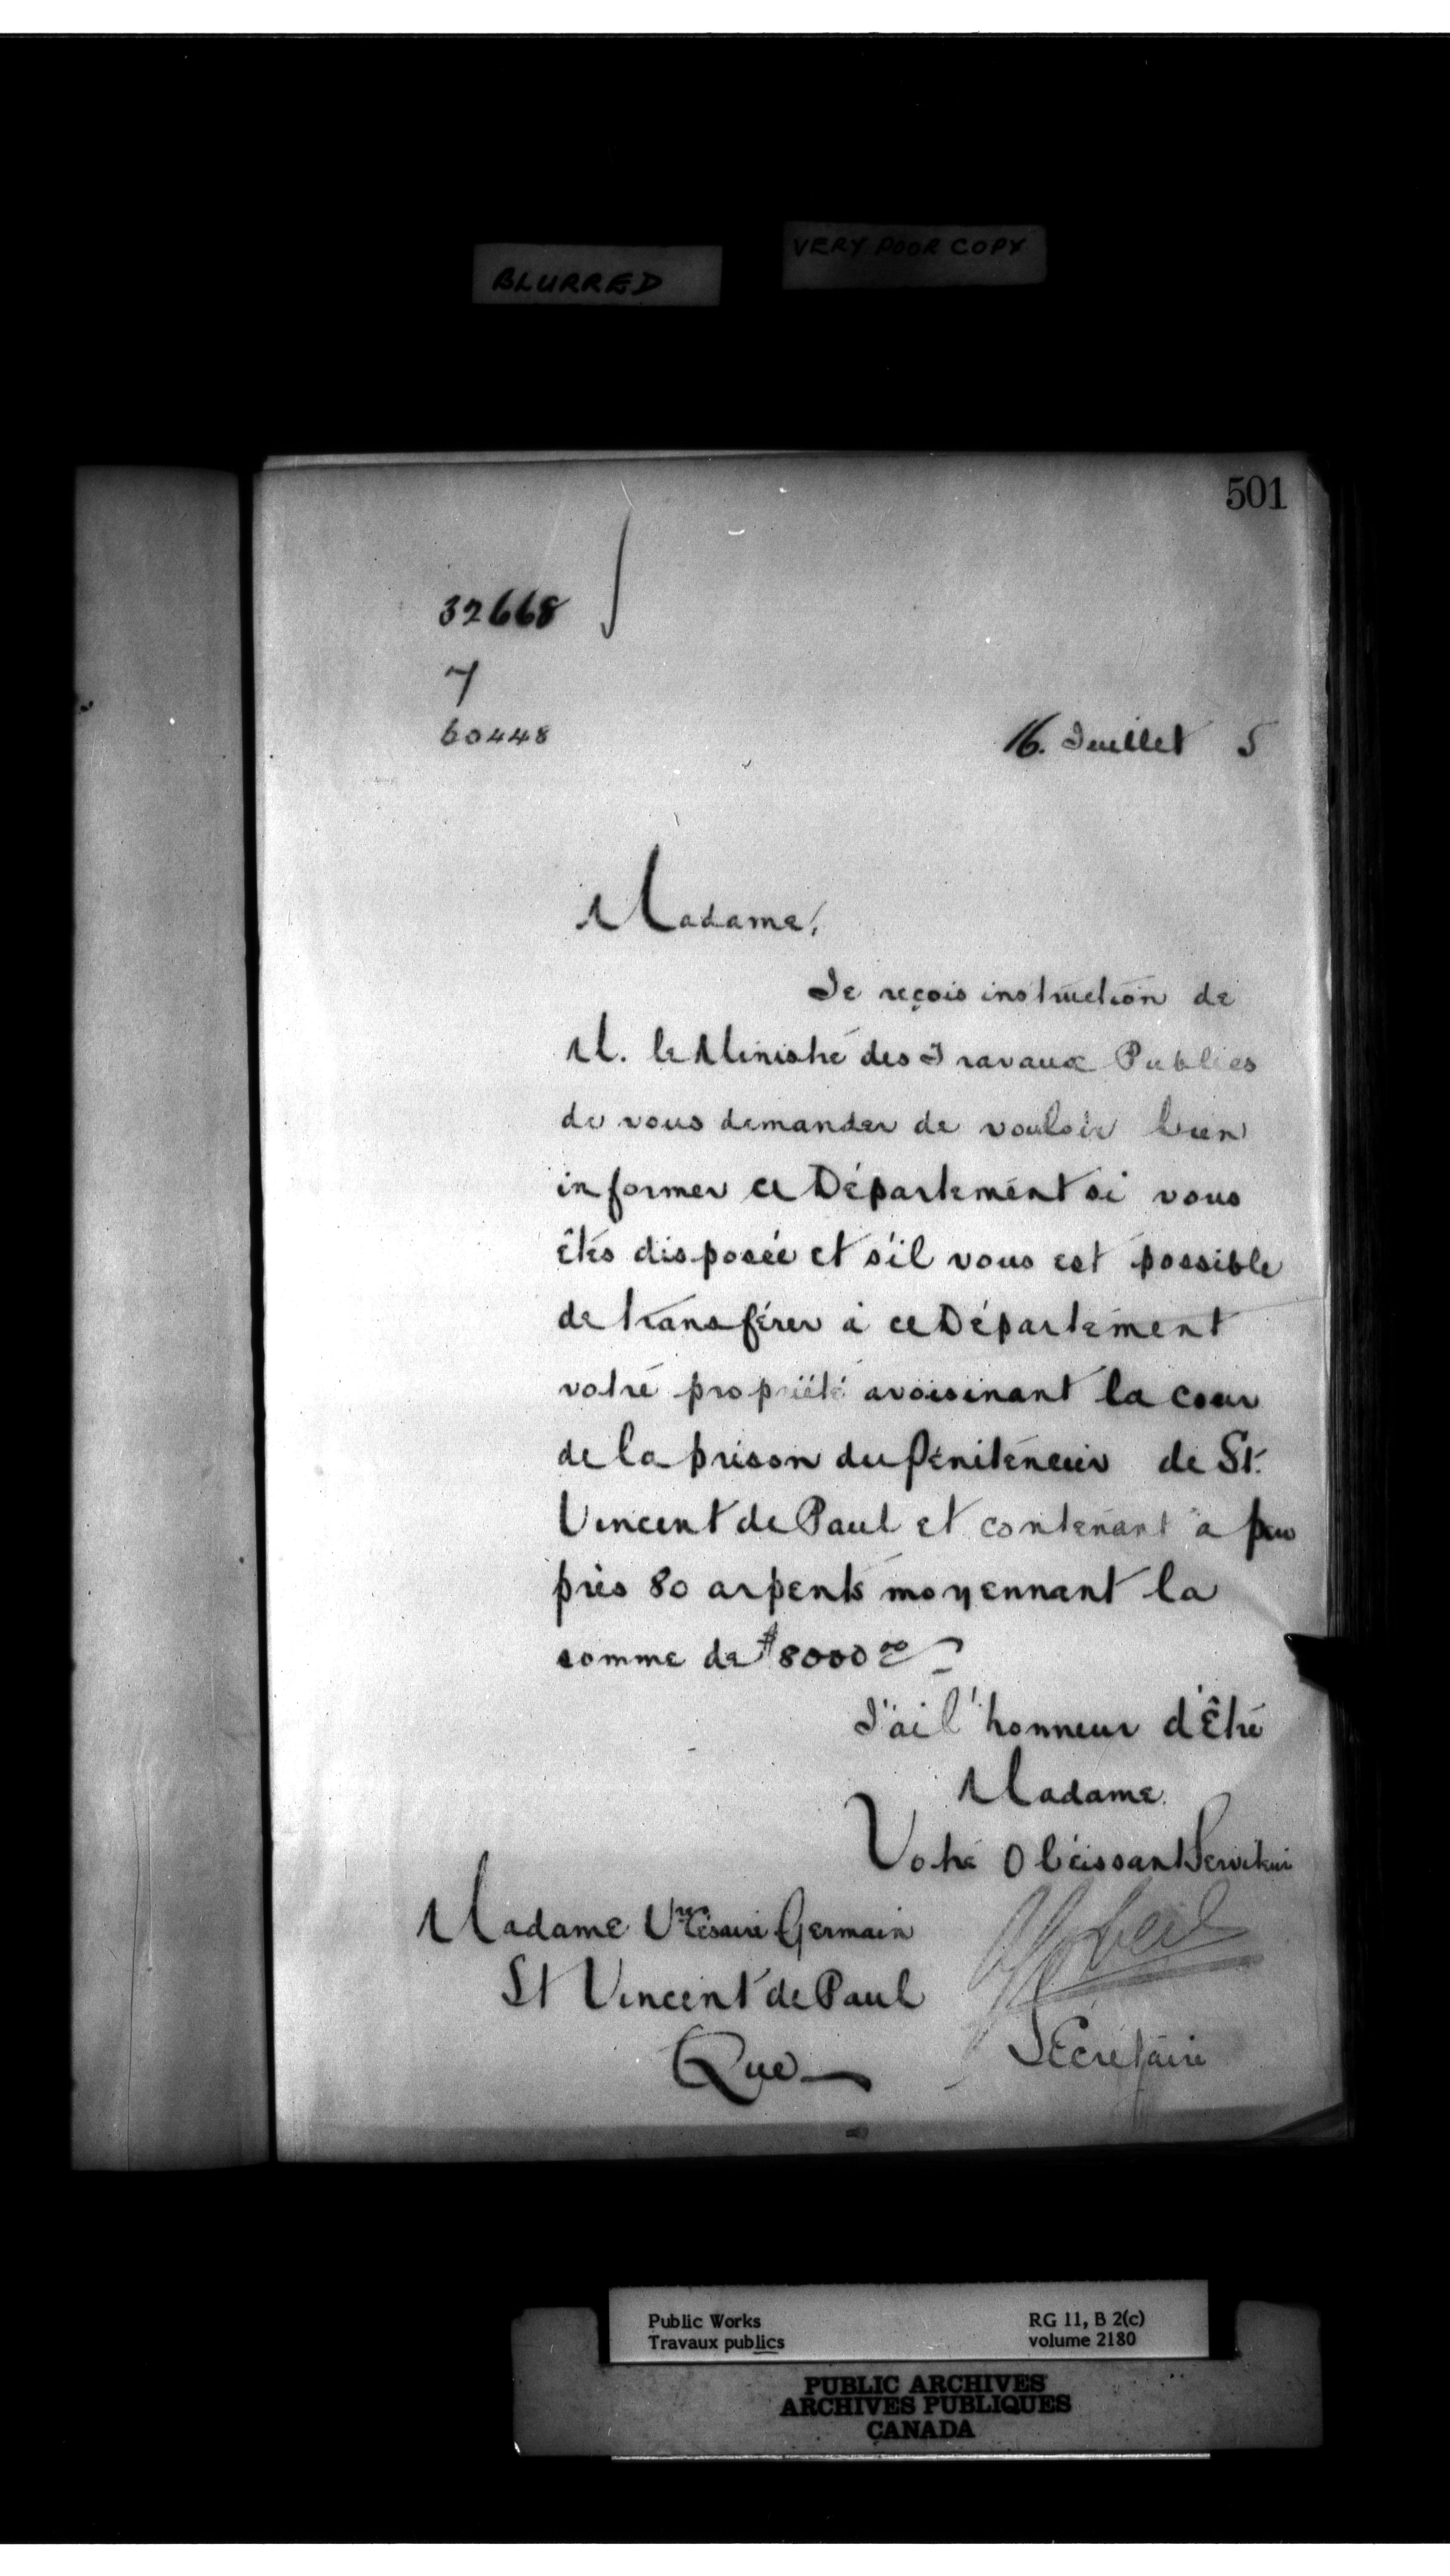 BLURRED
VERY POOR COPY
501
32668
7
60448
16. Juillet 5
Madame,
Je reçois instruction de
M. le Ministre des Travaux Publics
de vous demander de vouloir bien
informer ce Département si vous
êtes disposée et s'il vous est possible
de transférer à ce Département
votre propriété avoisinant la cour
de la prison du Pénitencier de St.
Vincent de Paul et contenant à peu
près 80 arpents moyennant la
somme de $8000 00
J'ai l'honneur d'Être
Madame.
Votre Obéissant Serviteur
Madame Vve Césaire Germain
St Vincent de Paul
Que
Secrétaire
Public Works
Travaux publics
RG 11, B 2(c)
volume 2180
PUBLIC ARCHIVES
ARCHIVES PUBLIQUES
CANADA